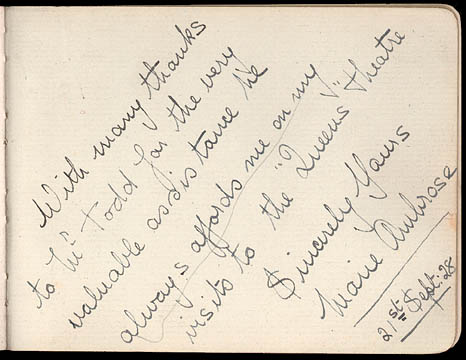 With many thanks
to Mr Todd for the very
valuable assistance he
always affords me on my
visits to the "Queens" Theatre
Sincerely Yours
Marie Ambrose
21st Sept: 28